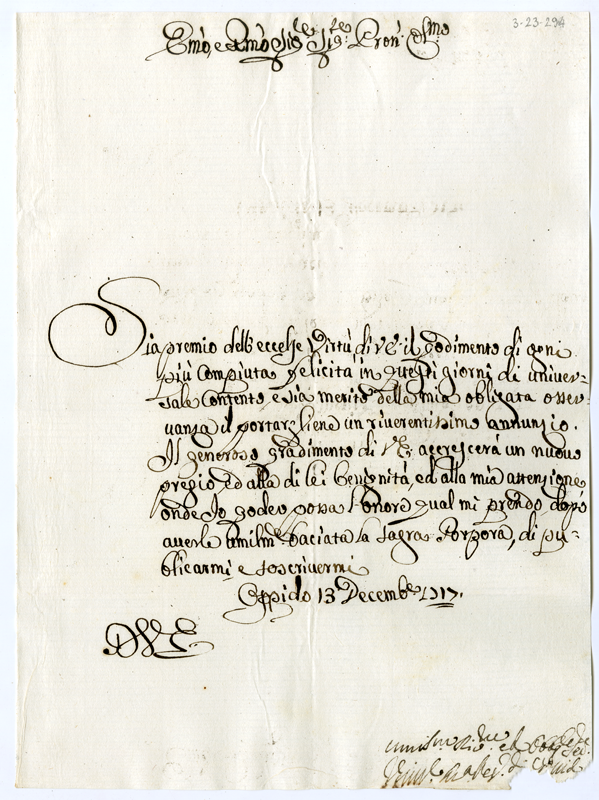 3-23-294
Emo, e Rmo Sig.re Sig.re Pron. Colmo
Sia premio dell'eccelse Virtù di V.E. il godimento di ogni
più compiuta felicità in questi giorni di univer-
sale contento e sia merito della mia obligata osser-
vanza il portargliene un riverentissimo annunzio.
Il generoso gradimento di V.E. accrescerà un nuovo
pregio ed alla di lei benignità, ed alla mia attenzione
onde Io goder possa l'onore qual mi prendo dopò
averle umilm.te baciata la Sagra Porpora, di pu-
blicarmi e soscrivermi
Oppido 13 Decemb.e 1717.
D V E